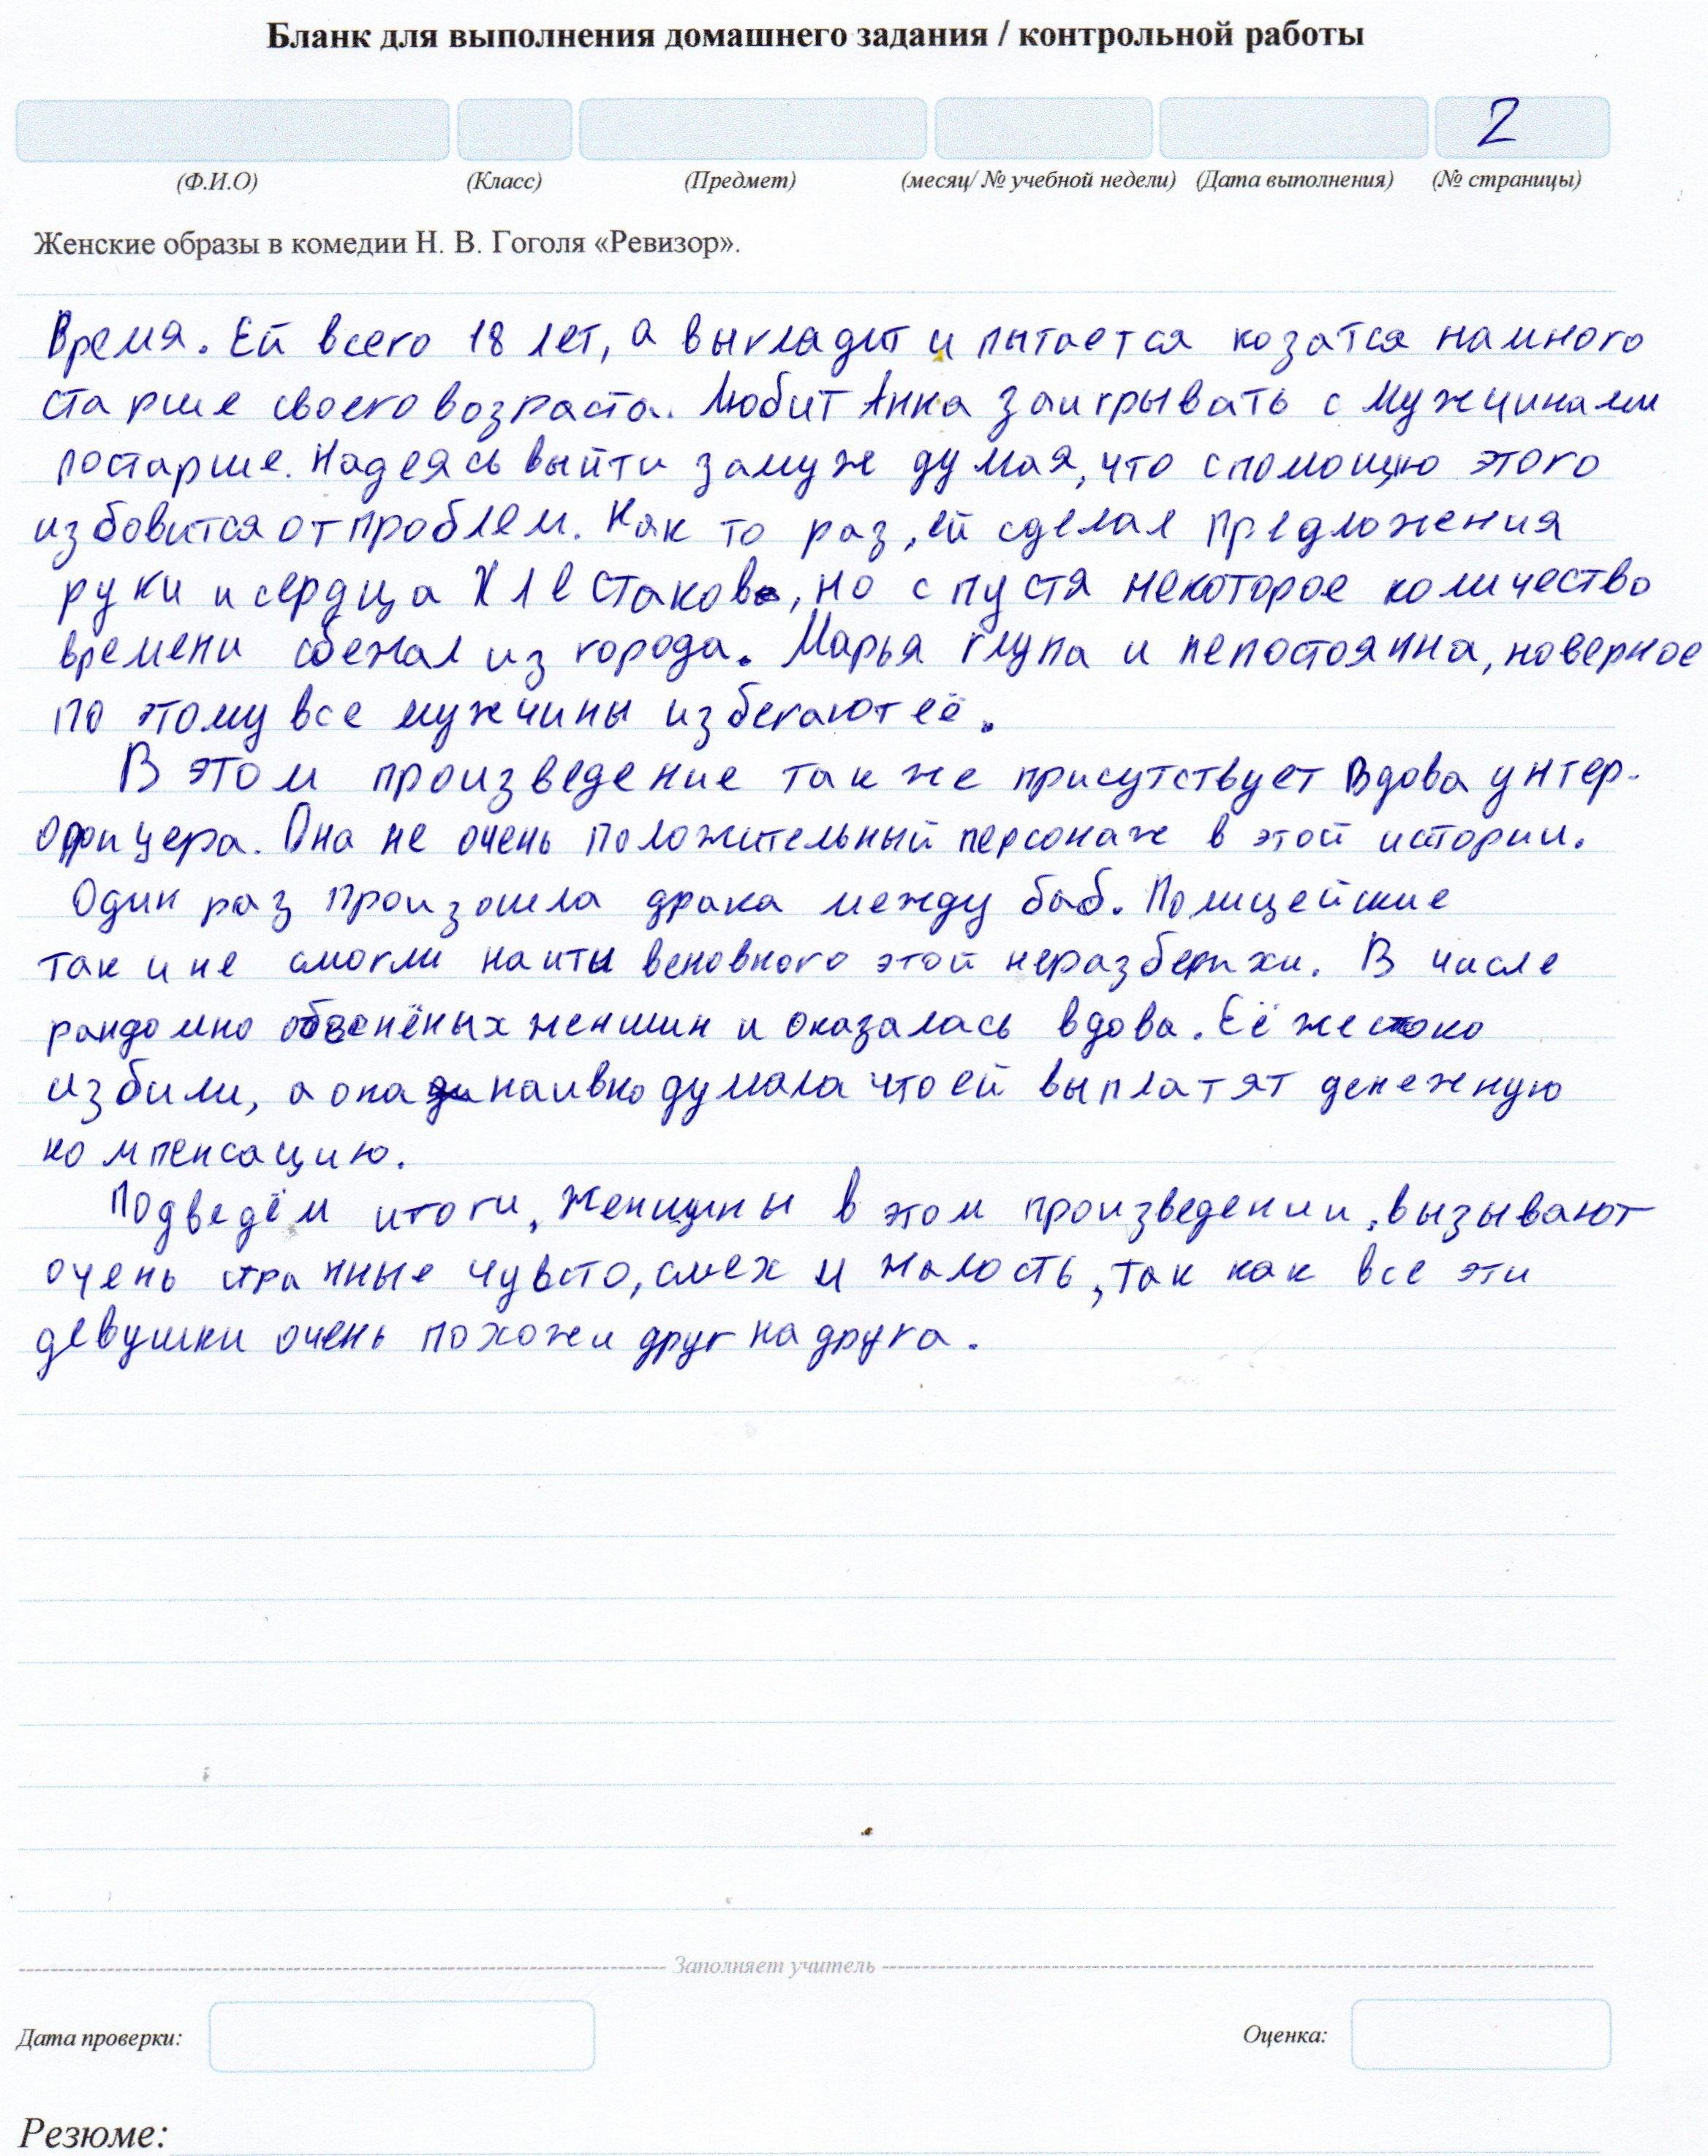 Бланк для выполнения домашнего задания / контрольной работы
2
(Ф.И.О) (Класс) (Предмет) (месяц/ № учебной недели) (Дата выполнения) (№ страницы)
Женские образы в комедии Н. В. Гоголя «Ревизор».
Время. Ей всего 18 лет, а выгладит и пытается козатся намного
старше своего возраста. Любит Анна заигрывать с мужчинами
постарше. Надеясь выйти замуж думая, что с помощю этого
избовится от проблем. Как то раз, ей сделал предложения
руки и сердца Хлестаков, но спустя некоторое количество
времени сбежал из города. Марья глупа и непостоянна, новерное
по этому все мужчины избегают её.
В этом произведение так же присутствует Вдова унтер-
офицера. Она не очень положительный персонаж в этой истории.
Один раз произошла драка между баб. Полицейские
так и не смогли найты веновного этой неразберихи. В числе
рандомно женшин и оказалась вдова. Её жестоко
избили, а она наивно думала что ей выплатят денежную
компенсацию.
Подведём итоги, Женщины в этом произведении, вызывают
очень странные чувсто, смех и жалость, так как все эти
девушки очень похожи друг на друга.
Заполняет учитель
Дата проверки: Оценка:
Резюме: